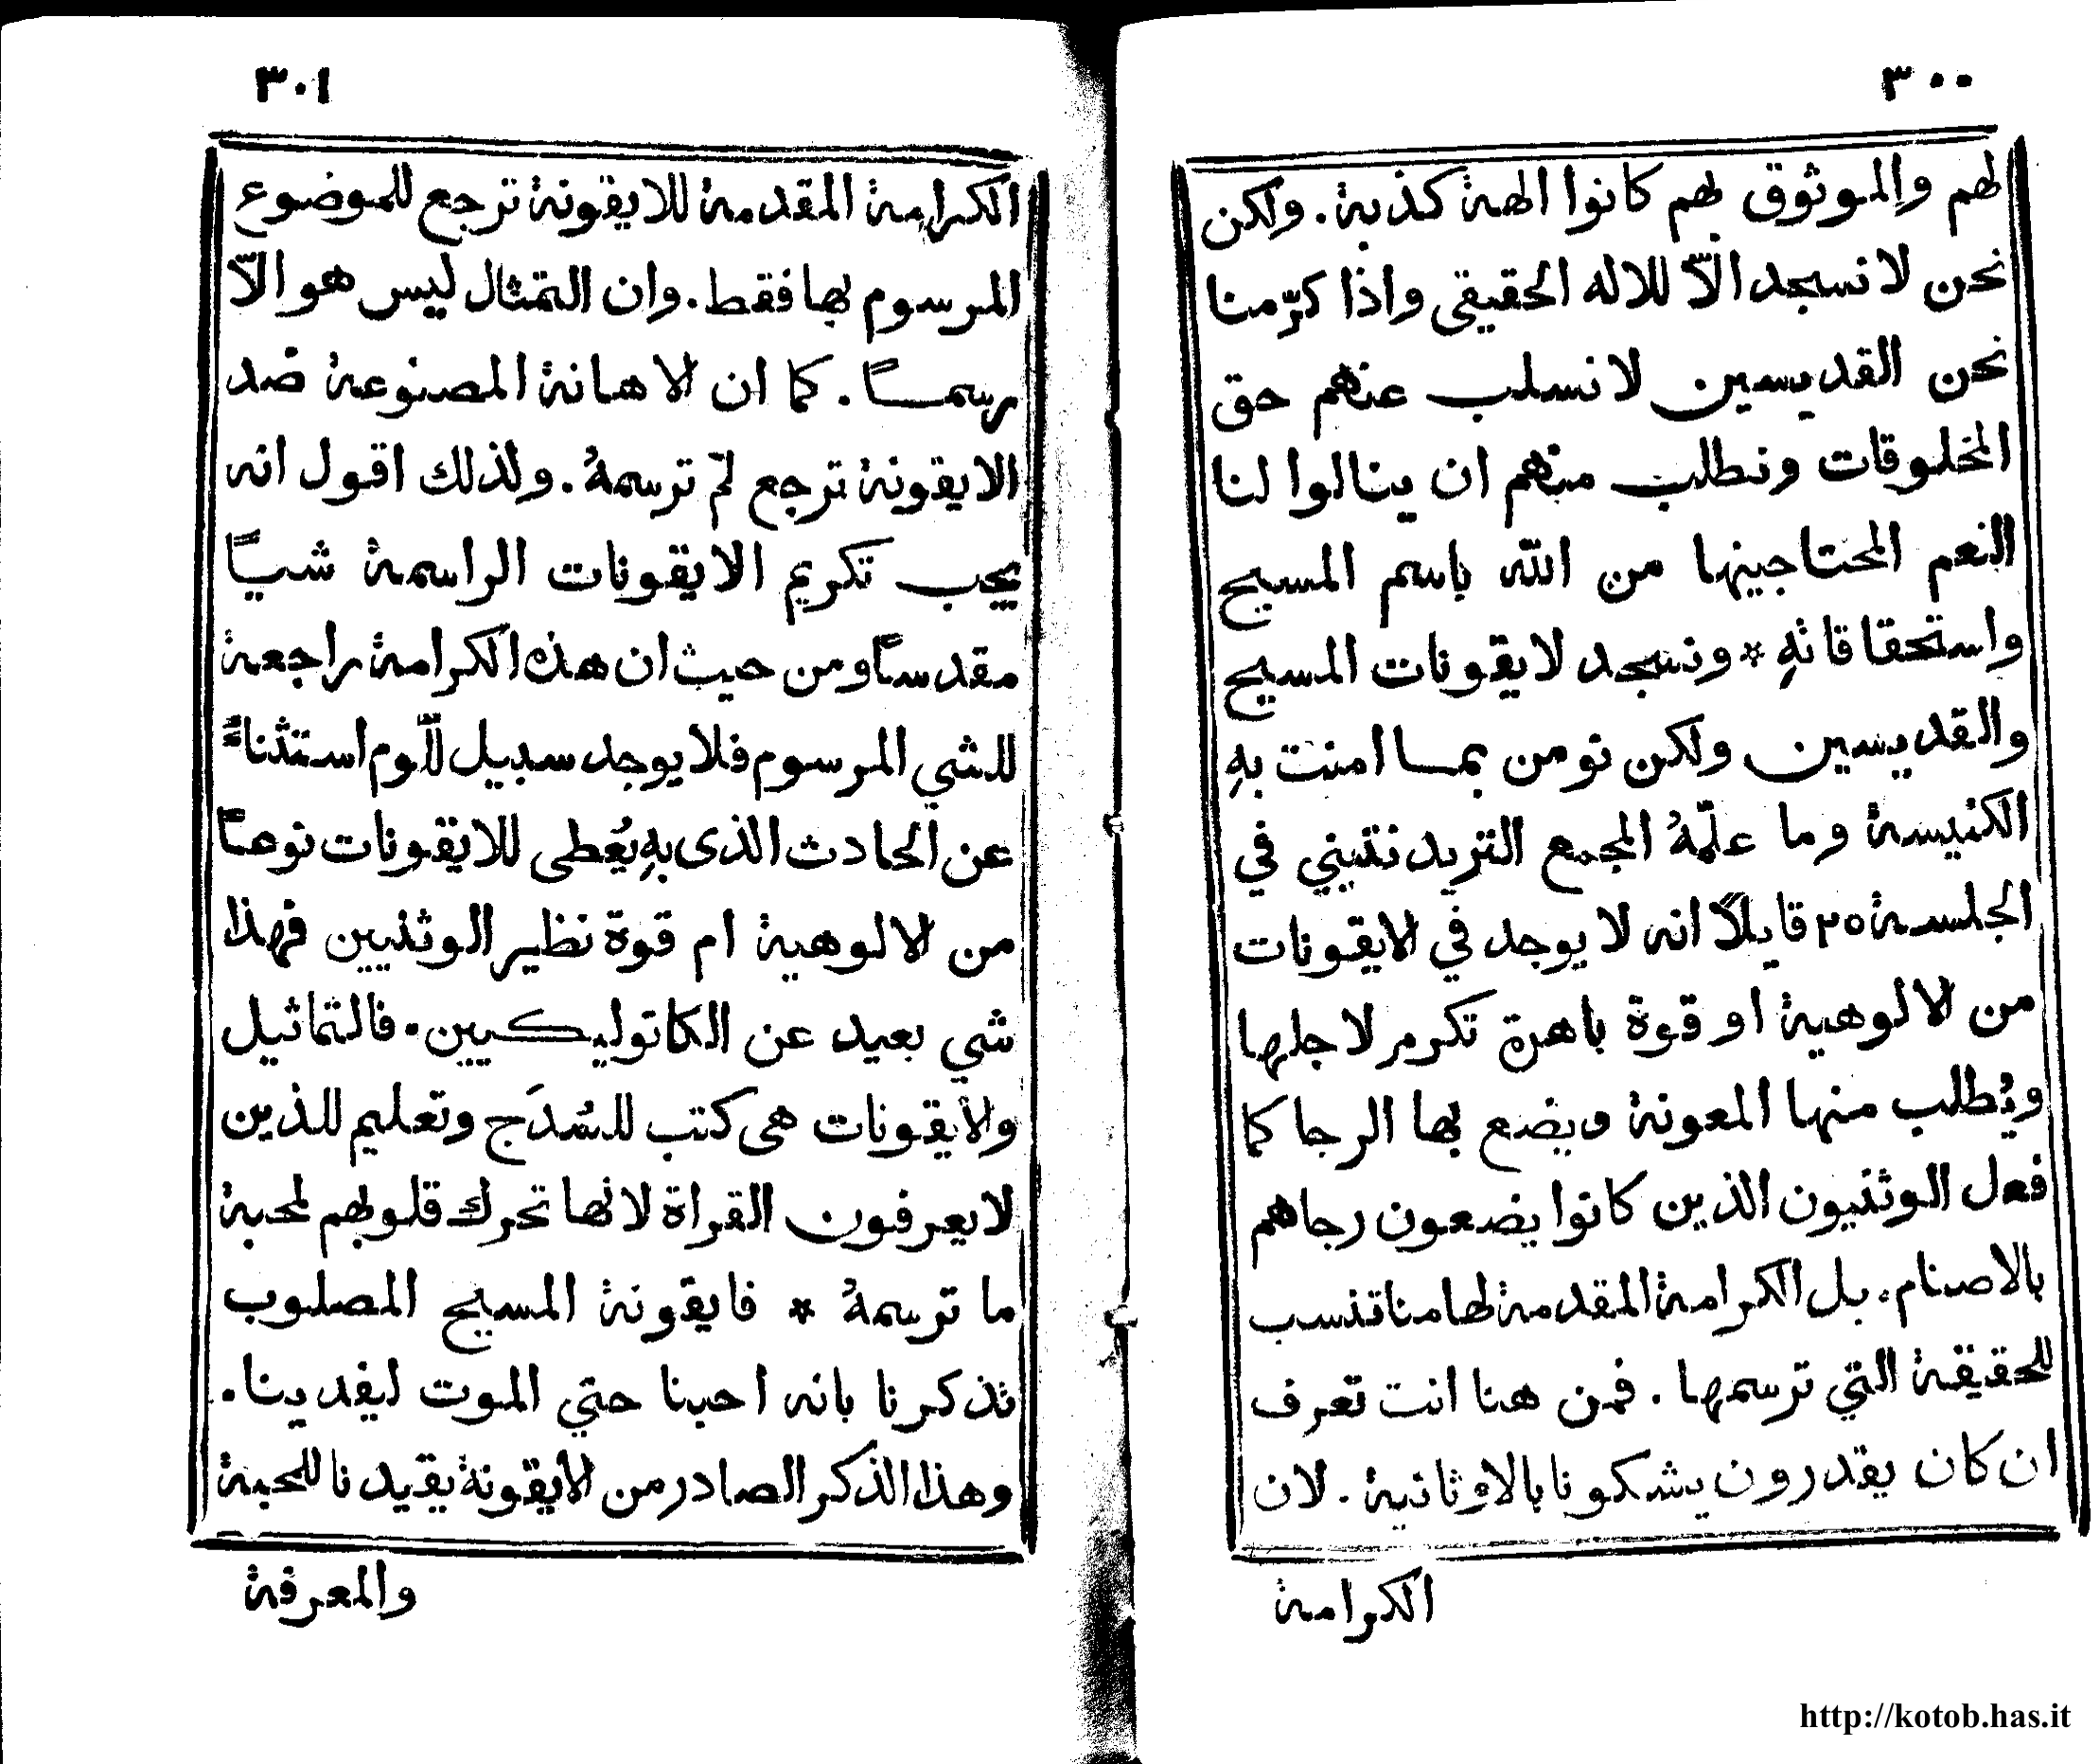 ٣٠٠
لهم والموثوق بهم كانوا الهة كذبة. ولكن
نحن لا نسجد الّا للاله الحقيقي واذا كرّمنا
نحن القديسين لا نسلب عنهم حق
المخلوقات ونطلب منهم ان ينالوا لنا
النعم المحتاجينها من الله باسم المسيح
واستحقاقاتهِ * ونسجد لايقونات المسيح
والقديسين ولكن نومن بما امنت بهِ
الكنيسة وما علّمهُ المجمع التريدنتيني في
الجلسة ٢٥ قايلاً انه لا يوجد في الايقونات
من الالوهية او قوة باهرة تكرم لاجلها
ويُطلب منها المعونة ويضع بها الرجا كما
فعل الوثنيون الذين كانوا يضعون رجاهم
بالاصنام. بل الكرامة المقدمة لها منا تنسب
للحقيقة التي ترسمها. فمن هنا انت تعرف
ان كان يقدرون يشكونا بالاوثانية. لان
الكرامة
٣٠١
الكرامة المقدمة للايقونة ترجع للموضوع
المرسوم بها فقط. وان التمثال ليس هو الّا
رسماً. كما ان الاهانة المصنوعة ضد
الايقونة ترجع لمّ ترسمهُ. ولذلك اقول انه
يجب تكريم الايقونات الراسمة شياً
مقدساً ومن حيث ان هذه الكرامة راجعة
للشي المرسوم فلا يوجد سبيل للّوم استثناءً
عن الحادث الذى بهِ يُعطى للايقونات نوعاً
من الالوهية ام قوة نظير الوثنيين فهذا
شي بعيد عن الكاتوليكيين. فالتماثيل
والايقونات هى كتب للسُدَج وتعليم للذين
لا يعرفون القراة لانها تحرك قلوبهم لمحبة
ما ترسمهُ * فايقونة المسيح المصلوب
تذكرنا بانه احبنا حتي الموت ليفدينا.
وهذا الذكر الصادر من الايقونة يقيدنا للمحبة
والمعرفة
http://kotob.has.it